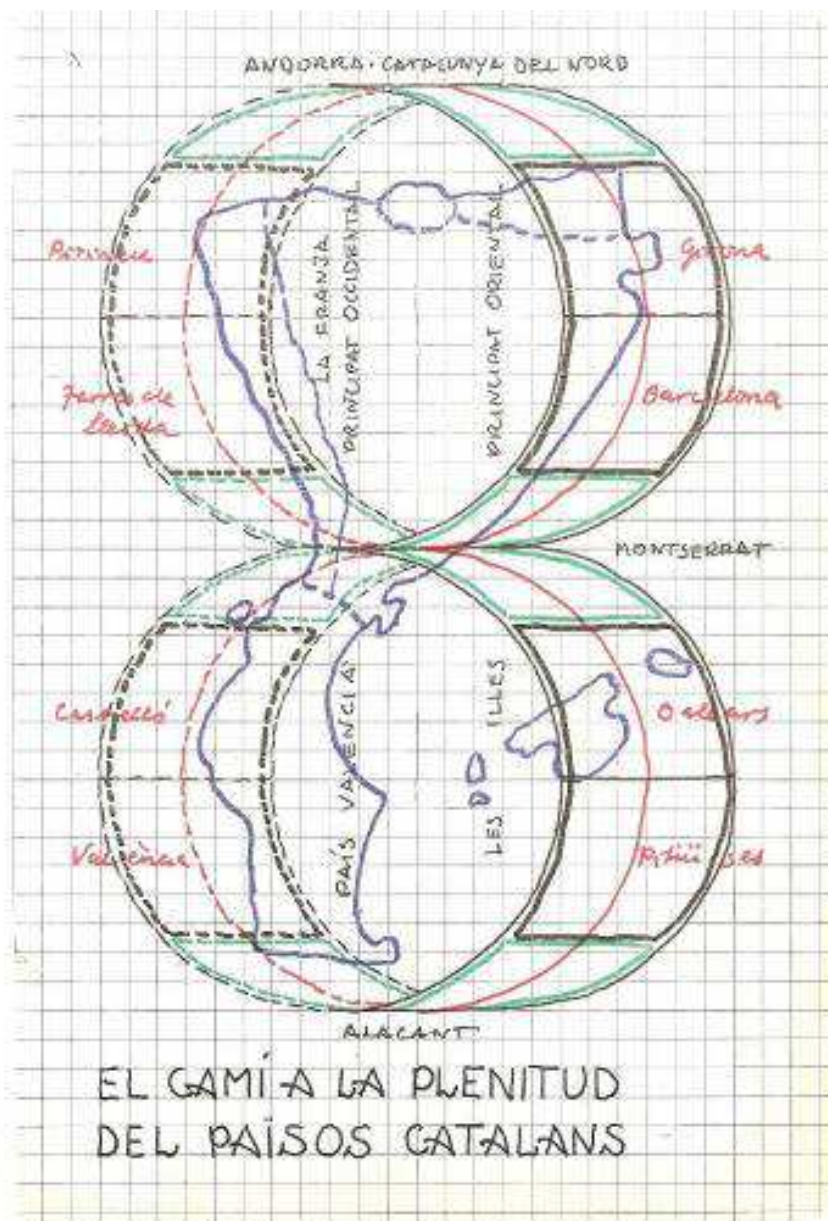 ANDORRA · CATALUNYA DEL NORD
Pirineu
Girona
LA FRANJA
PRINCIPAT OCCIDENTAL
PRINCIPAT ORIENTAL
Terres de
Barcelona
MONTSERRAT
Castelló
PAÍS VALENCIÀ
LES ILLES
Balears
València
Pitiüses
ALACANT
EL CAMÍ A LA PLENITUD
DEL PAÏSOS CATALANS